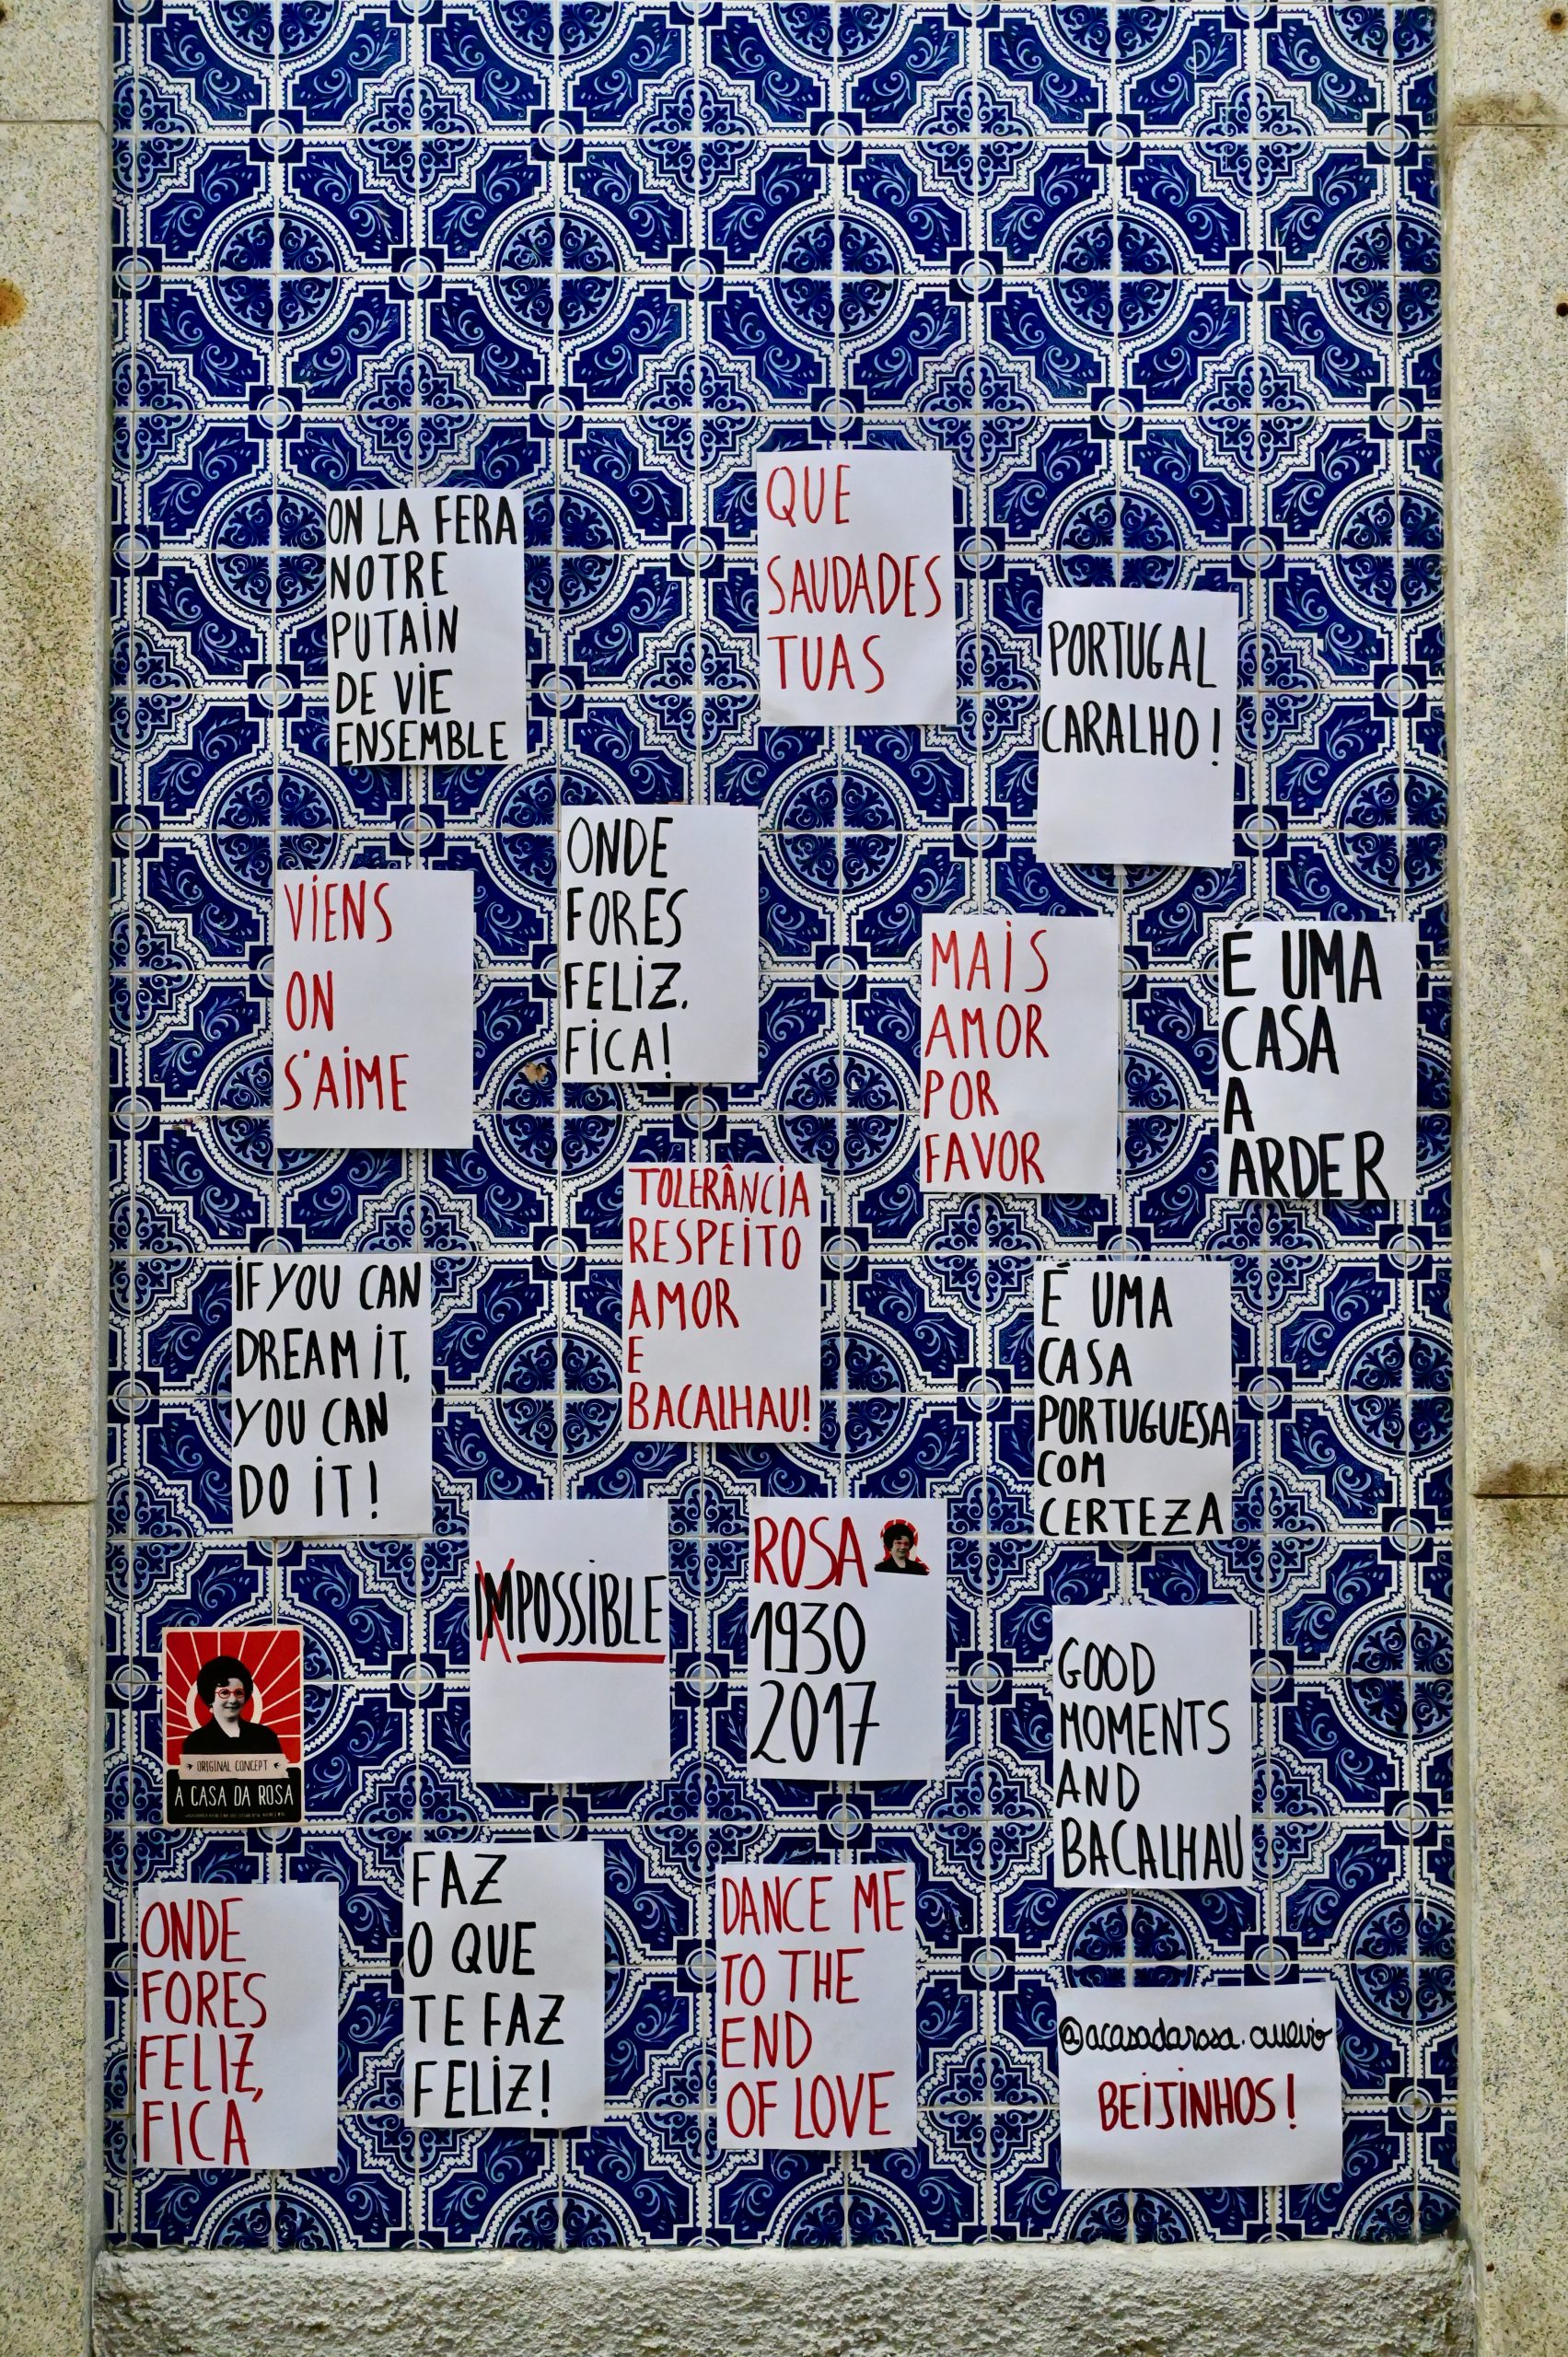 ON LA FERA
NOTRE
PUTAIN
DE VIE
ENSEMBLE
QUE
SAUDADES
TUAS
PORTUGAL
CARALHO!
ONDE
FORES
FELIZ.
FICA!
VIENS
ON
S'AIME
MAIS
AMOR
POR
FAVOR
É UMA
CASA
A
ARDER
TOLERÂNCIA
RESPEITO
AMOR
E
BACALHAU!
IF YOU CAN
DREAM IT,
YOU CAN
DO IT!
É UMA
CASA
PORTUGUESA
COM
CERTEZA
IMPOSSIBLE
ROSA
1930
2017
GOOD
MOMENTS
AND
BACALHAU
ORIGINAL CONCEPT
A CASA DA ROSA
FAZ
O QUE
TE FAZ
FELIZ!
DANCE ME
TO THE
END
OF LOVE
ONDE
FORES
FELIZ,
FICA
@acasadarosa.aveiro
BEIJINHOS!